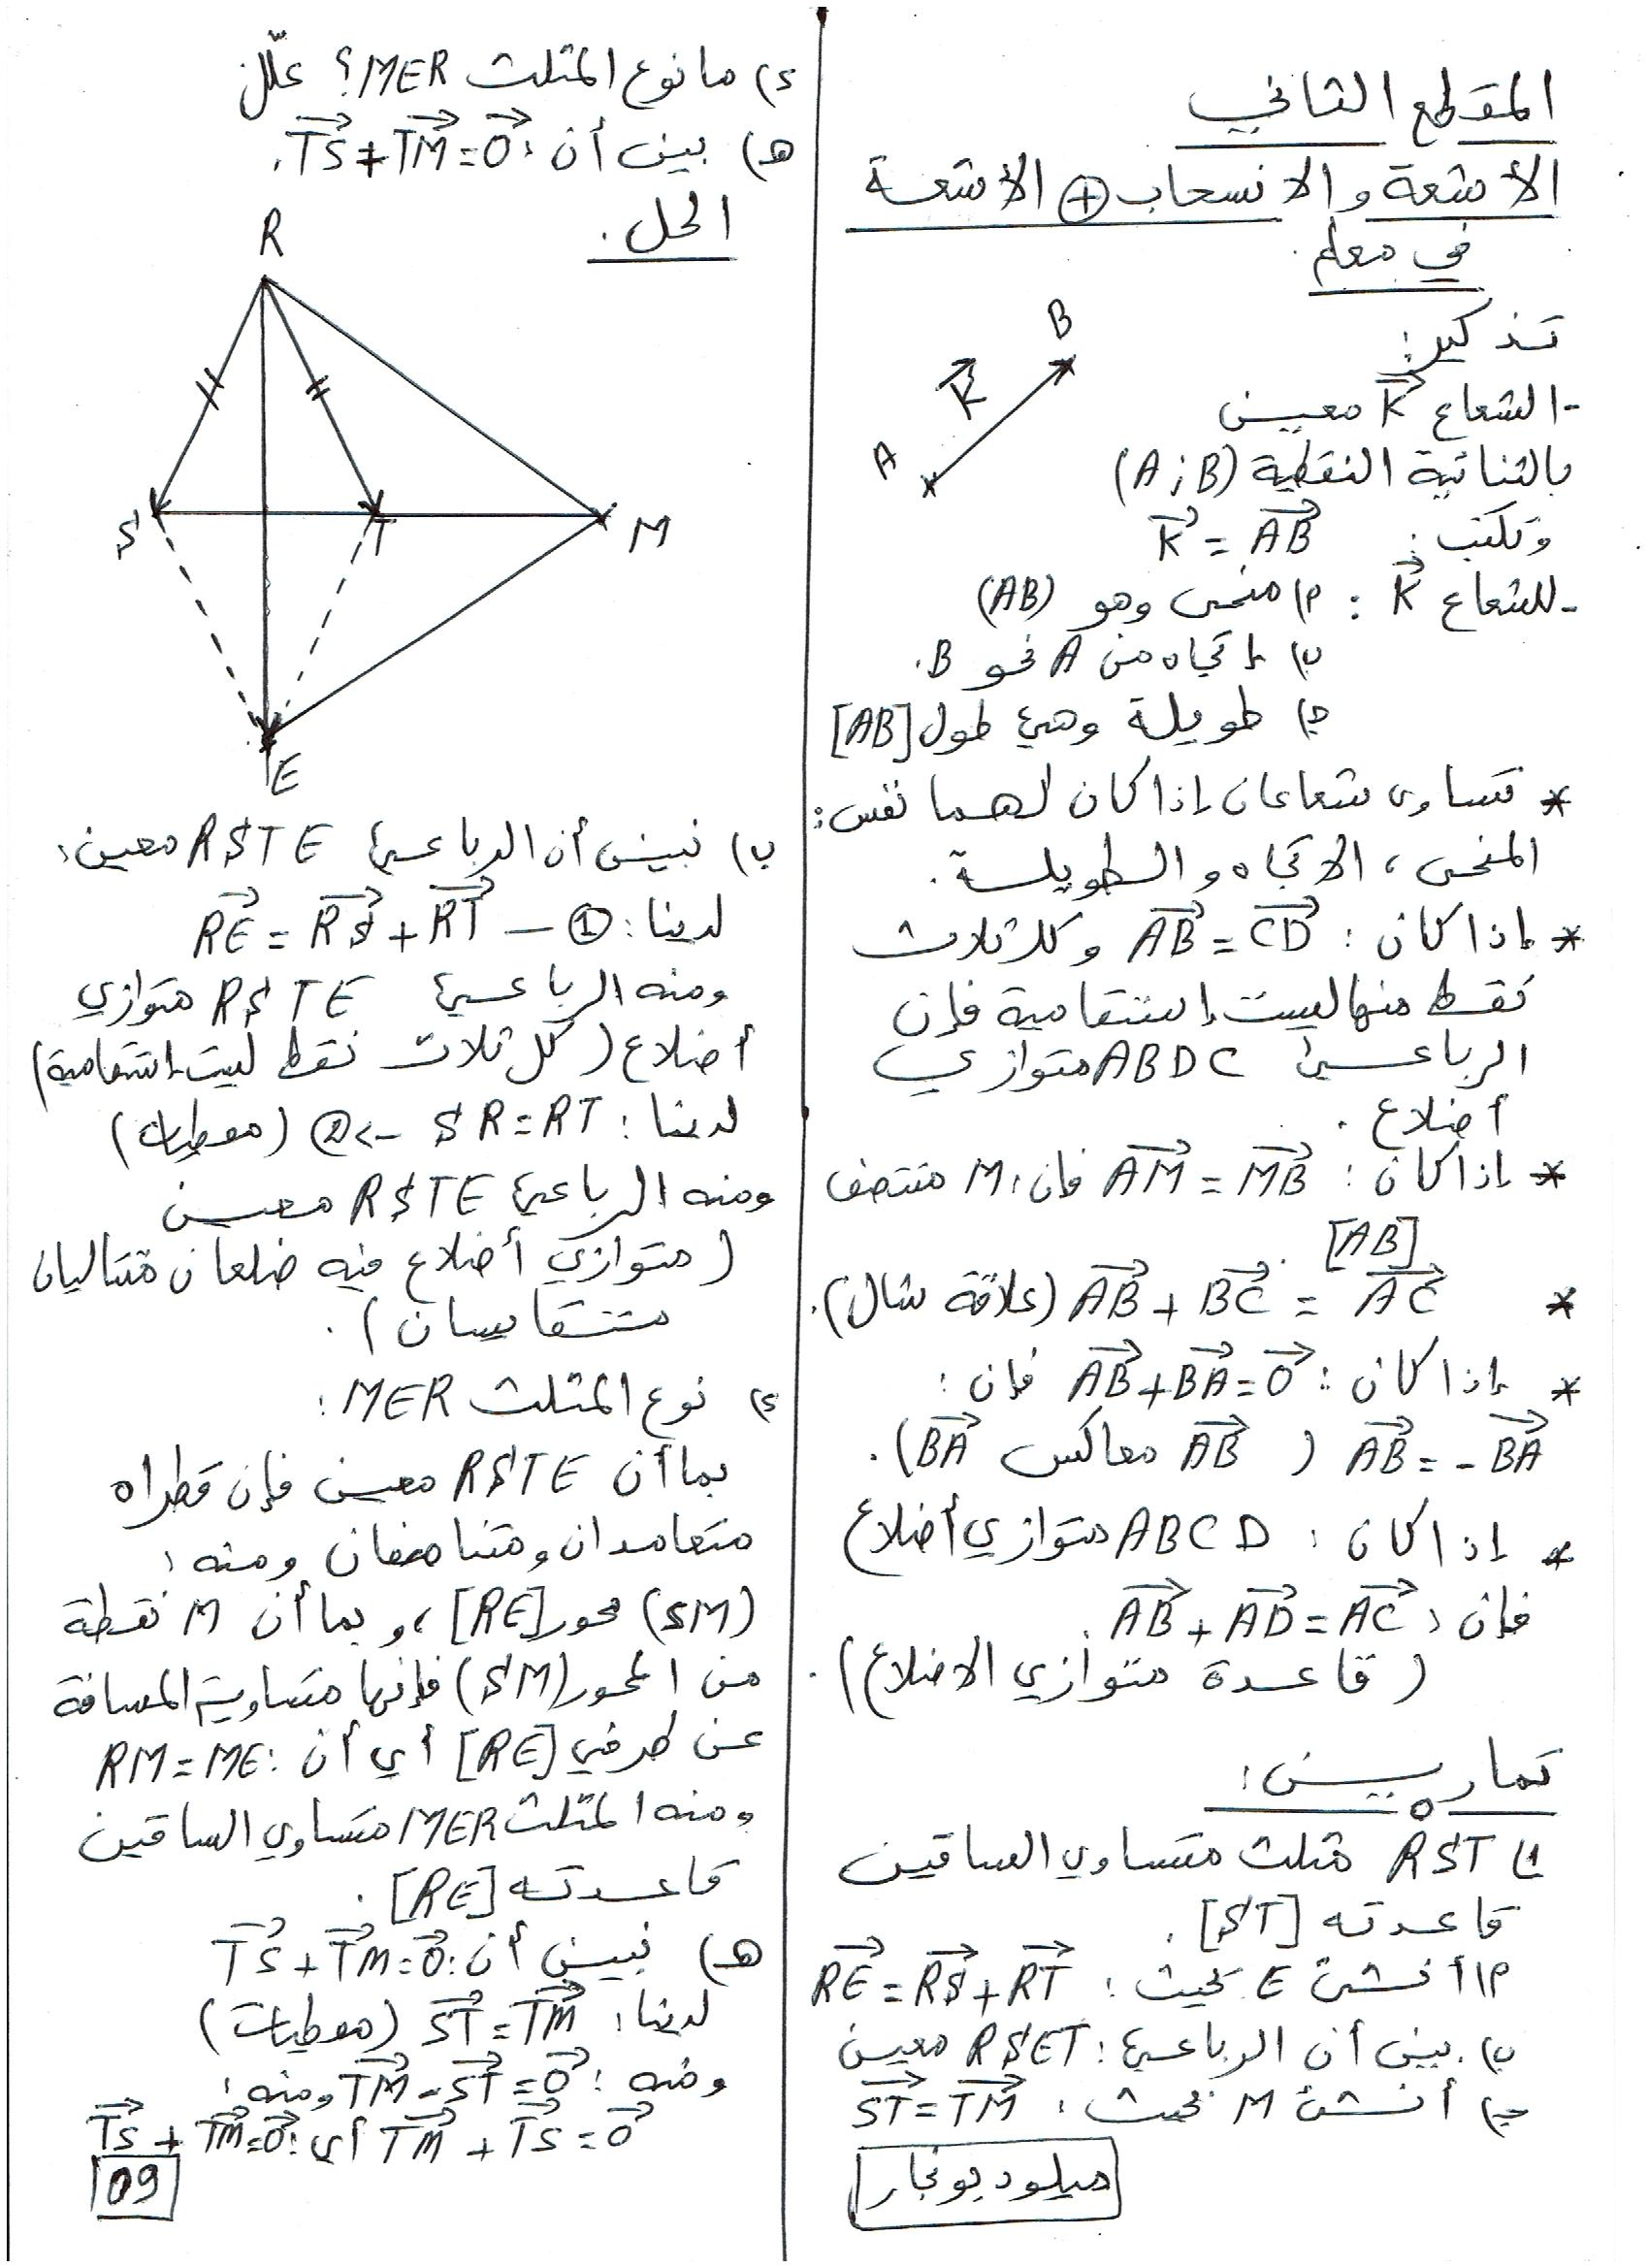 المقطع الثاني
الأشعة والانسحاب + الأشعة
في معلم.
تذكير:
- الشعاع K⃗ معين
بالثنائية النقطية (A;B)
ونكتب: K⃗ = AB⃗
- للشعاع K⃗ : أ) منحى وهو (AB)
ب) إتجاه من A نحو B.
ج) طويلة وهي طول [AB]
A
K⃗
B
* تساوى شعاعان إذا كان لهما نفس:
المنحى، الاتجاه والطويلة.
* إذا كان: AB⃗ = CD⃗ وكل ثلاث
نقط منها ليست إستقامية فإن
الرباعي ABDC متوازي
أضلاع.
* إذا كان: AM⃗ = MB⃗ فإن: M منتصف
[AB].
* AB⃗ + BC⃗ = AC⃗ (علاقة شال).
* إذا كان: AB⃗ + BA⃗ = 0⃗ فإن:
AB⃗ = - BA⃗ ( AB⃗ معاكس BA⃗ ).
* إذا كان: ABCD متوازي أضلاع
فإن: AB⃗ + AD⃗ = AC⃗.
(قاعدة متوازي الاضلاع).
تمارين:
1) RST مثلث متساوي الساقين
قاعدته [ST].
أ) أنشئ E بحيث: RE⃗ = RS⃗ + RT⃗
ب) بين أن الرباعي: RSET معين
ج) أنشئ M بحيث: ST⃗ = TM⃗
ميلود بونجار
د) ما نوع المثلث MER؟ علّل
هـ) بين أن: TS⃗ + TM⃗ = 0⃗.
الحل.
R
S
T
M
E
ب) نبين أن الرباعي RSTE معين:
لدينا: RE⃗ = RS⃗ + RT⃗ — ①
ومنه الرباعي RSTE متوازي
أضلاع (كل ثلاث نقط ليست إستقامية)
لدينا: SR = RT -> ② (معطيات)
ومنه الرباعي RSTE معين
(متوازي أضلاع فيه ضلعان متتاليان
متقايسان).
د) نوع المثلث MER:
بما أن RSTE معين فإن قطراه
متعامدان ومتناصفان ومنه:
(SM) محور [RE]، وبما أن M نقطة
من المحور (SM) فإنها متساوية المسافة
عن طرفي [RE] أي أن: RM = ME
ومنه المثلث MER متساوي الساقين
قاعدته [RE].
هـ) نبين أن: TS⃗ + TM⃗ = 0⃗
لدينا: ST⃗ = TM⃗ (معطيات)
ومنه: TM⃗ - ST⃗ = 0⃗ ومنه:
TM⃗ + TS⃗ = 0⃗ أي: TS⃗ + TM⃗ = 0⃗
09